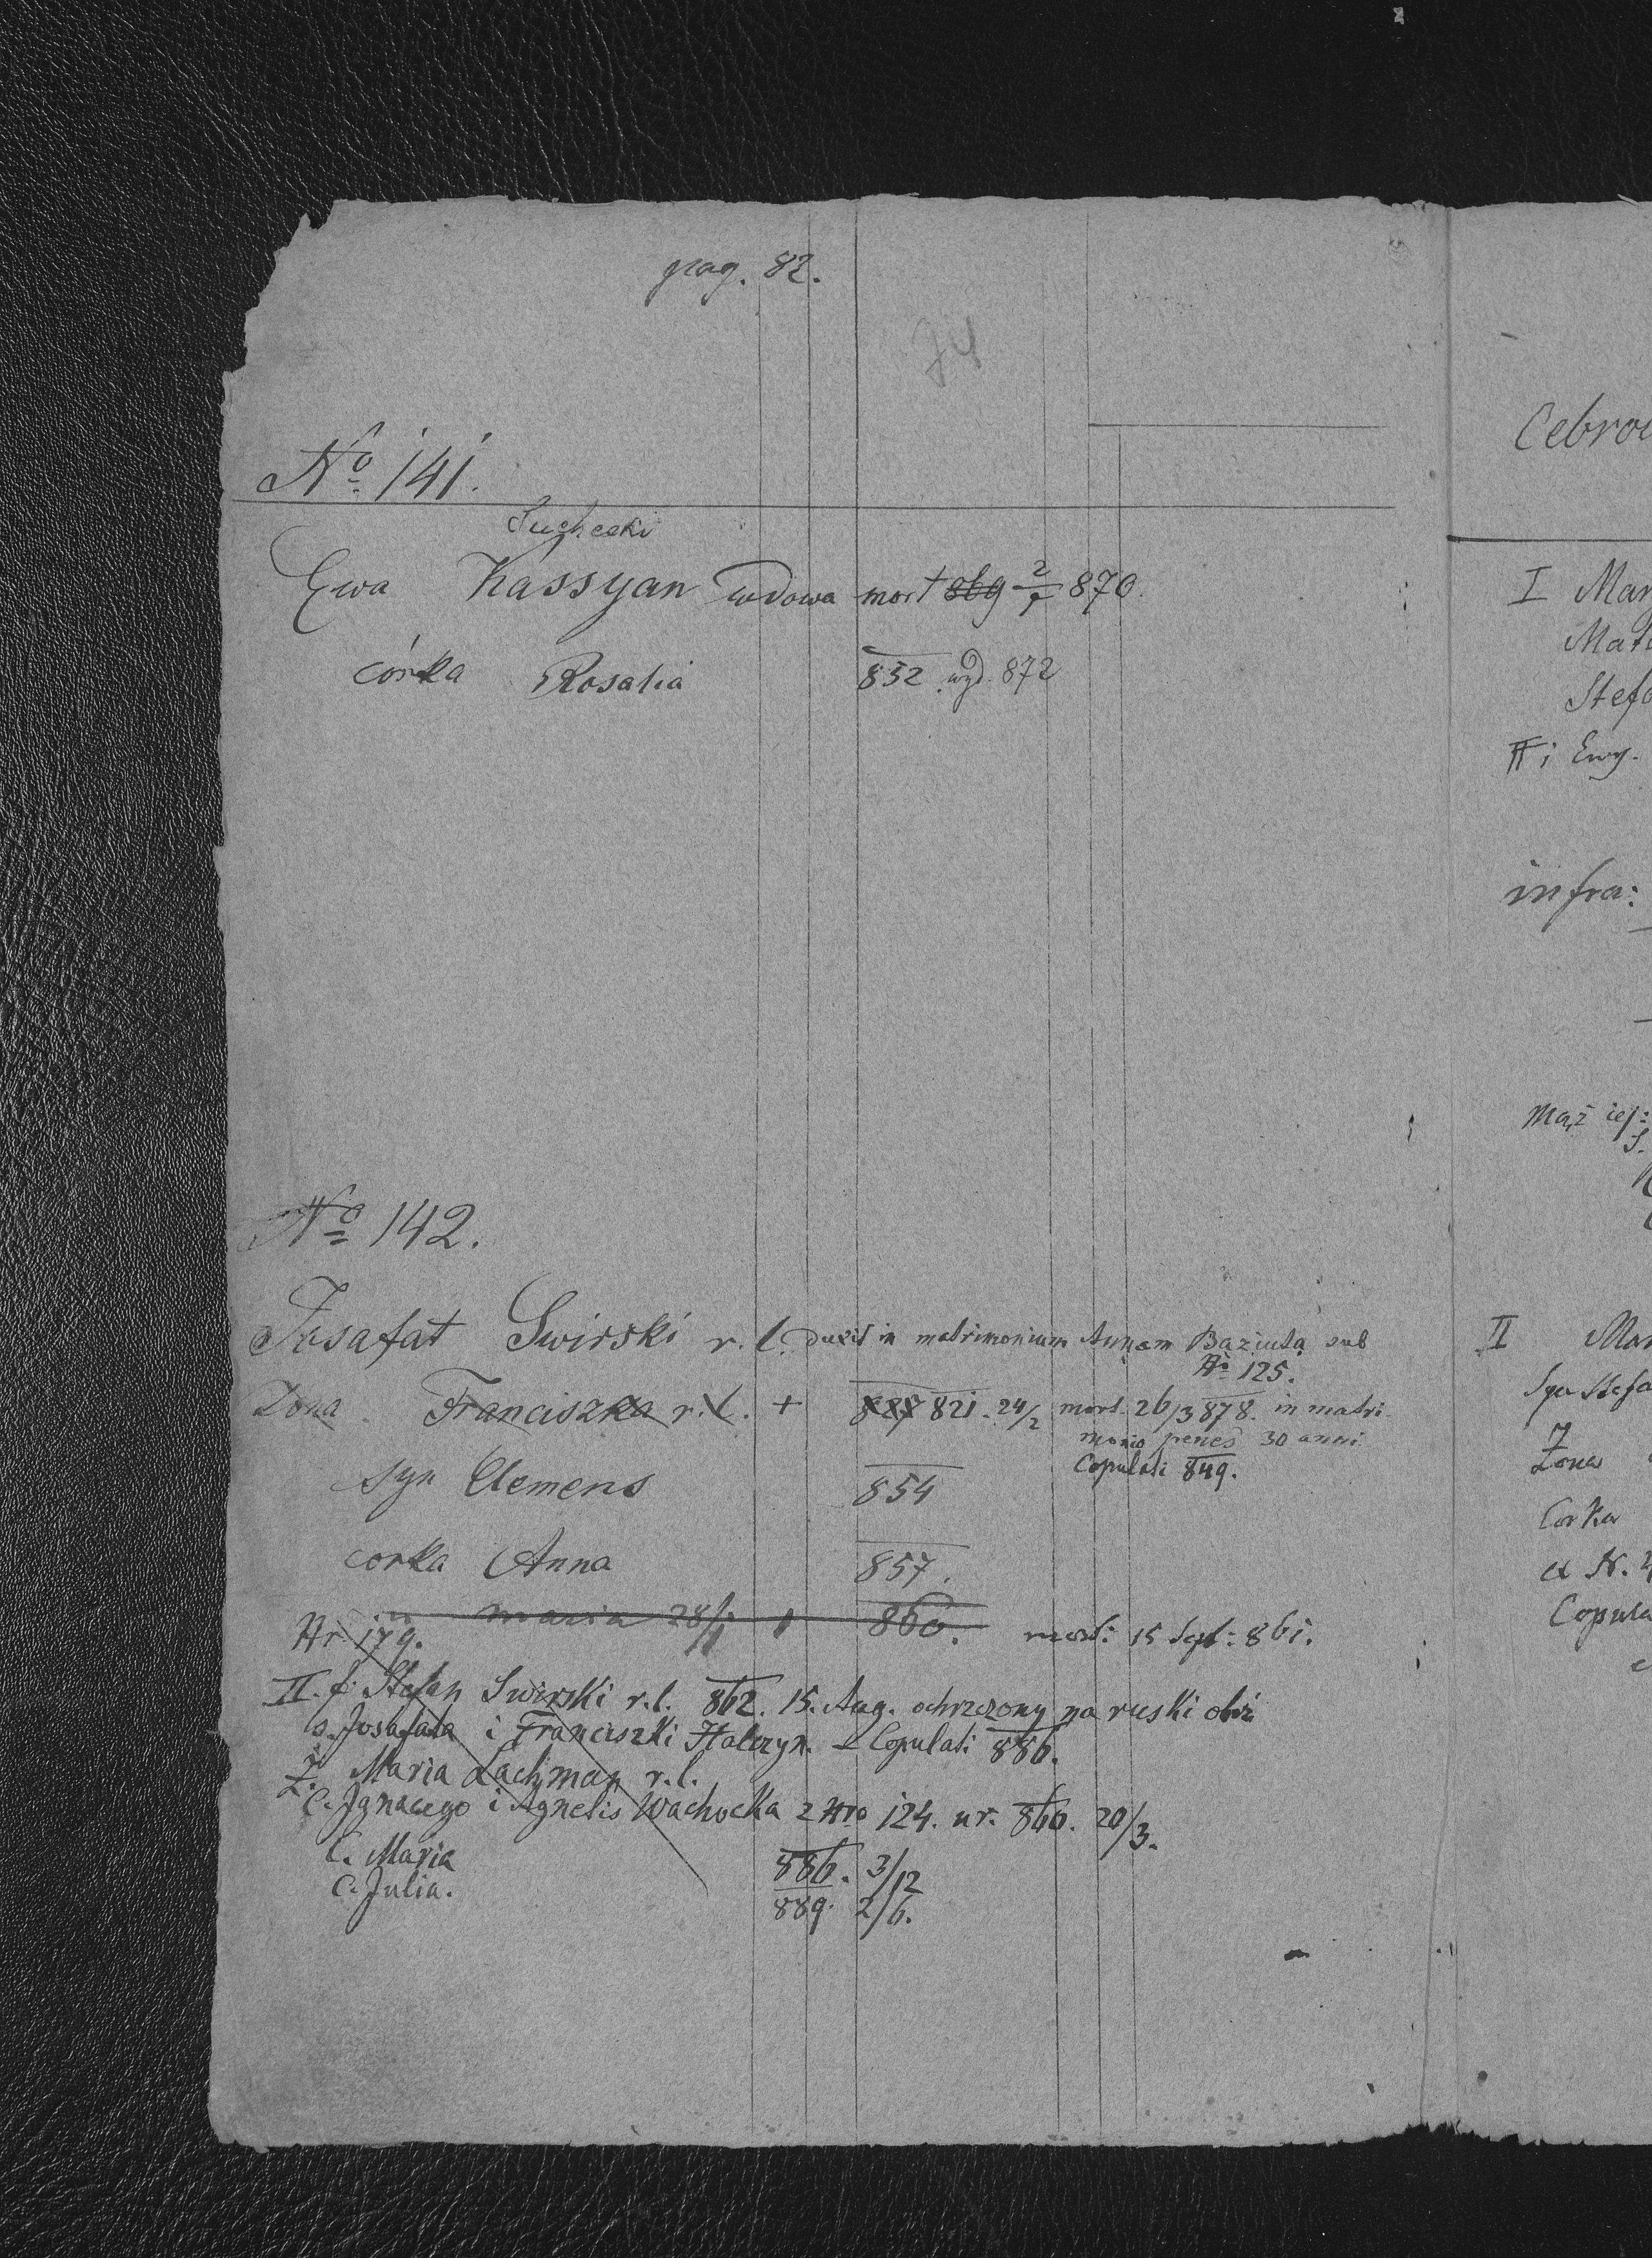 pag. 82.
74
No 141.
Suchecki
Ewa Kassyan wdowa mort 869 2/ 870.
córka Rosalia 852 wyd. 872
No 142.
Josafat Swirski r. l. duxit in matrimonium Annam Baziuta sub
No 125.
Żona Franciszka r. l. + 821. 24/2 mort. 26/3 878. in matri-
monio penes 30 anni
Copulati 849.
syn Clemens 854
corka Anna 857.
maria 28/ 860. mort: 15 Sept: 861.
Nr 179.
II. f. Stefan Swirski r. l. 862. 15. Aug. ochrzczony na ruski obż
s. Josafata i Franciszki Halczyn. - Copulati 886.
Ż. Maria Lachman r. l.
C. Ignacego i Agnelis Wachocka z Nro 124. ur. 860. 20/3.
C. Maria 886. 3/12
C. Julia. 889. 2/6.
I Mar
Mat
Stef
II; Ewy.
infra:
Mąż iej:
S.
II Mar
Syn Stefa
Ż
Żona
Corka
ex N.
Copula